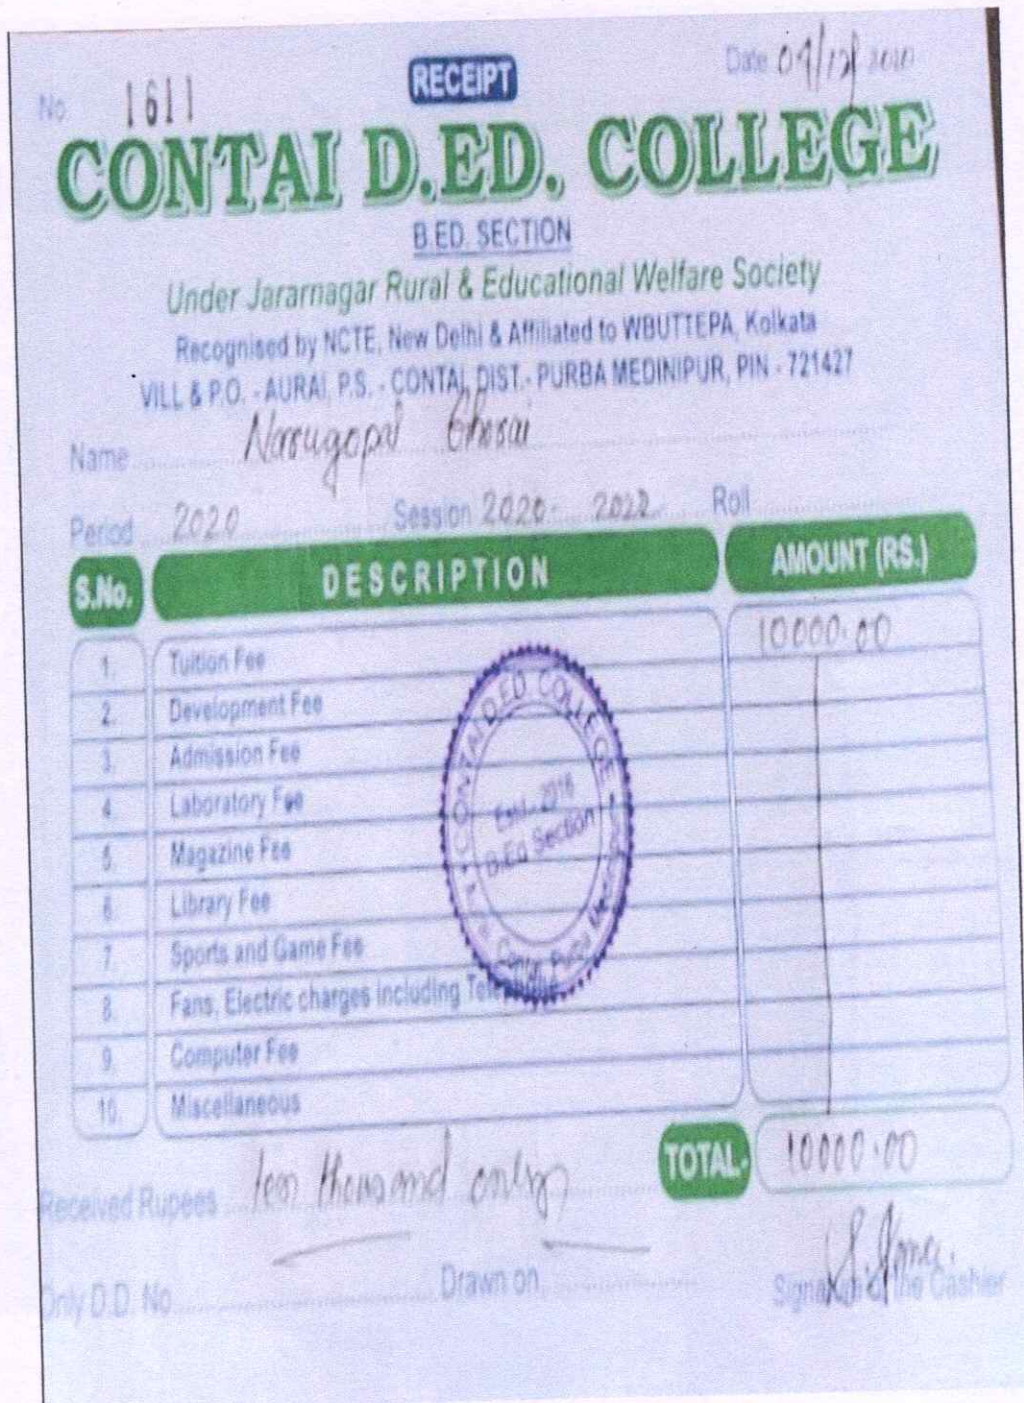 No. 1611 RECEIPT Date 09/12/2020
CONTAI D.ED. COLLEGE
B.ED. SECTION
Under Jararnagar Rural & Educational Welfare Society
Recognised by NCTE, New Delhi & Affiliated to WBUTTEPA, Kolkata
VILL & P.O. - AURAI, P.S. - CONTAI, DIST.- PURBA MEDINIPUR, PIN - 721427
Name Narugopal Ghorai
Period 2020 Session 2020- 2022 Roll
S.No. DESCRIPTION AMOUNT (RS.)
1. Tuition Fee 10000.00
2. Development Fee
3. Admission Fee
4. Laboratory Fee
5. Magazine Fee
6. Library Fee
7. Sports and Game Fee
8. Fans, Electric charges including Telephone
9. Computer Fee
10. Miscellaneous
CONTAI D.ED COLLEGE
Estd.- 2016
B.Ed Section
Contai Purba
TOTAL- 10000.00
Received Rupees ten thousand only
Only D.D. No. Drawn on
Signature of the Cashier